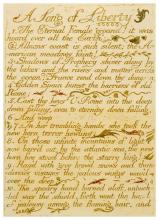 A Song of Liberty
1. The Eternal Female groand! it was
heard over all the Earth:
2. Albions coast is sick silent; the A-
merican meadows faint!
3. Shadows of Prophecy shiver along by
the lakes and the rivers and mutter across
the ocean. France rend down thy dungeon
4. Golden Spain burst the barriers of old
Rome;
5. Cast thy keys O Rome into the deep
down falling, even to eternity down falling,
6. And weep
7. In her trembling hands she took the
new born terror howling;
8. On those infinite mountains of light
now barr'd out by the atlantic sea, the new
born fire stood before the starry king!
9.
10. The speary hand burned aloft, unbuck-
led was the shield, forth went the hand
of jealousy among the flaming hair, and